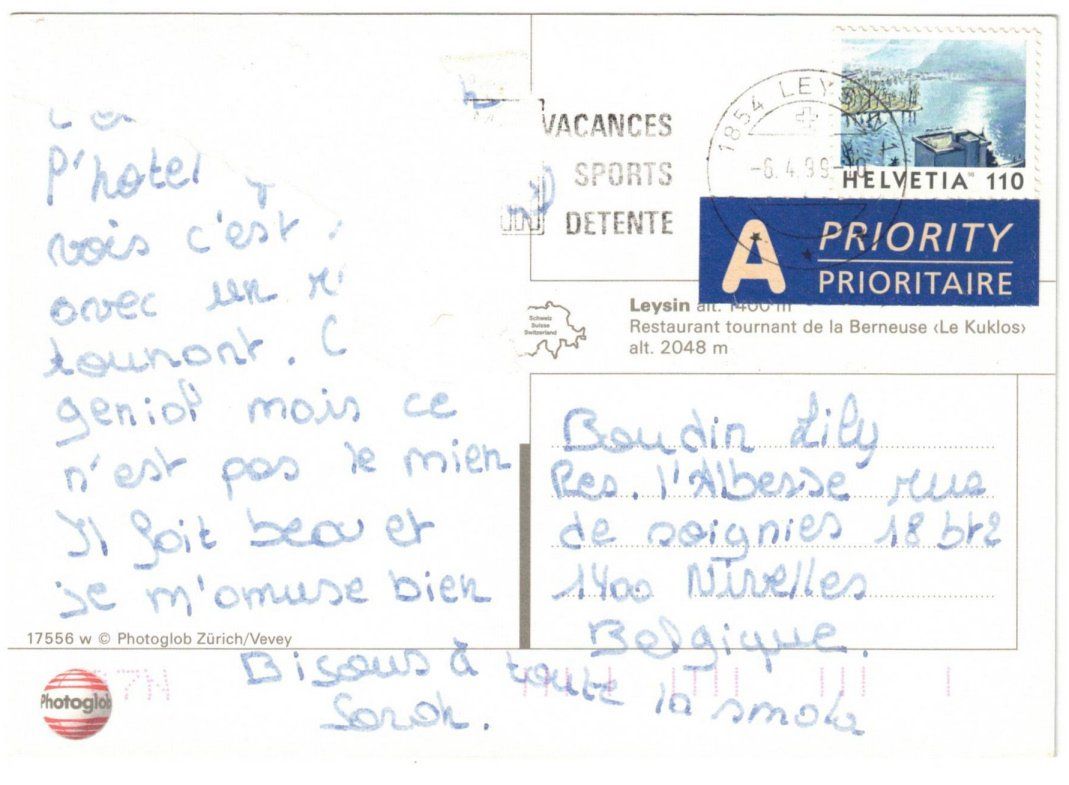 P'hotel
VACANCES
SPORTS
DETENTE
1854 LEY
-6.4.99-
HELVETIA 110
A PRIORITY
PRIORITAIRE
vois c'est
avec un
tounant. C
genial mais ce
n'est pas le mien
Il fait beau et
je m'amuse bien
Bisous à toute la smala
Sarah.
Schweiz
Suisse
Switzerland
Leysin alt. 1400 m
Restaurant tournant de la Berneuse ‹Le Kuklos›
alt. 2048 m
Boudin Lily
Res. l'Abesse rue
de soignies 18 bt2
1400 Nivelles
Belgique.
17556 w © Photoglob Zürich/Vevey
Photoglob